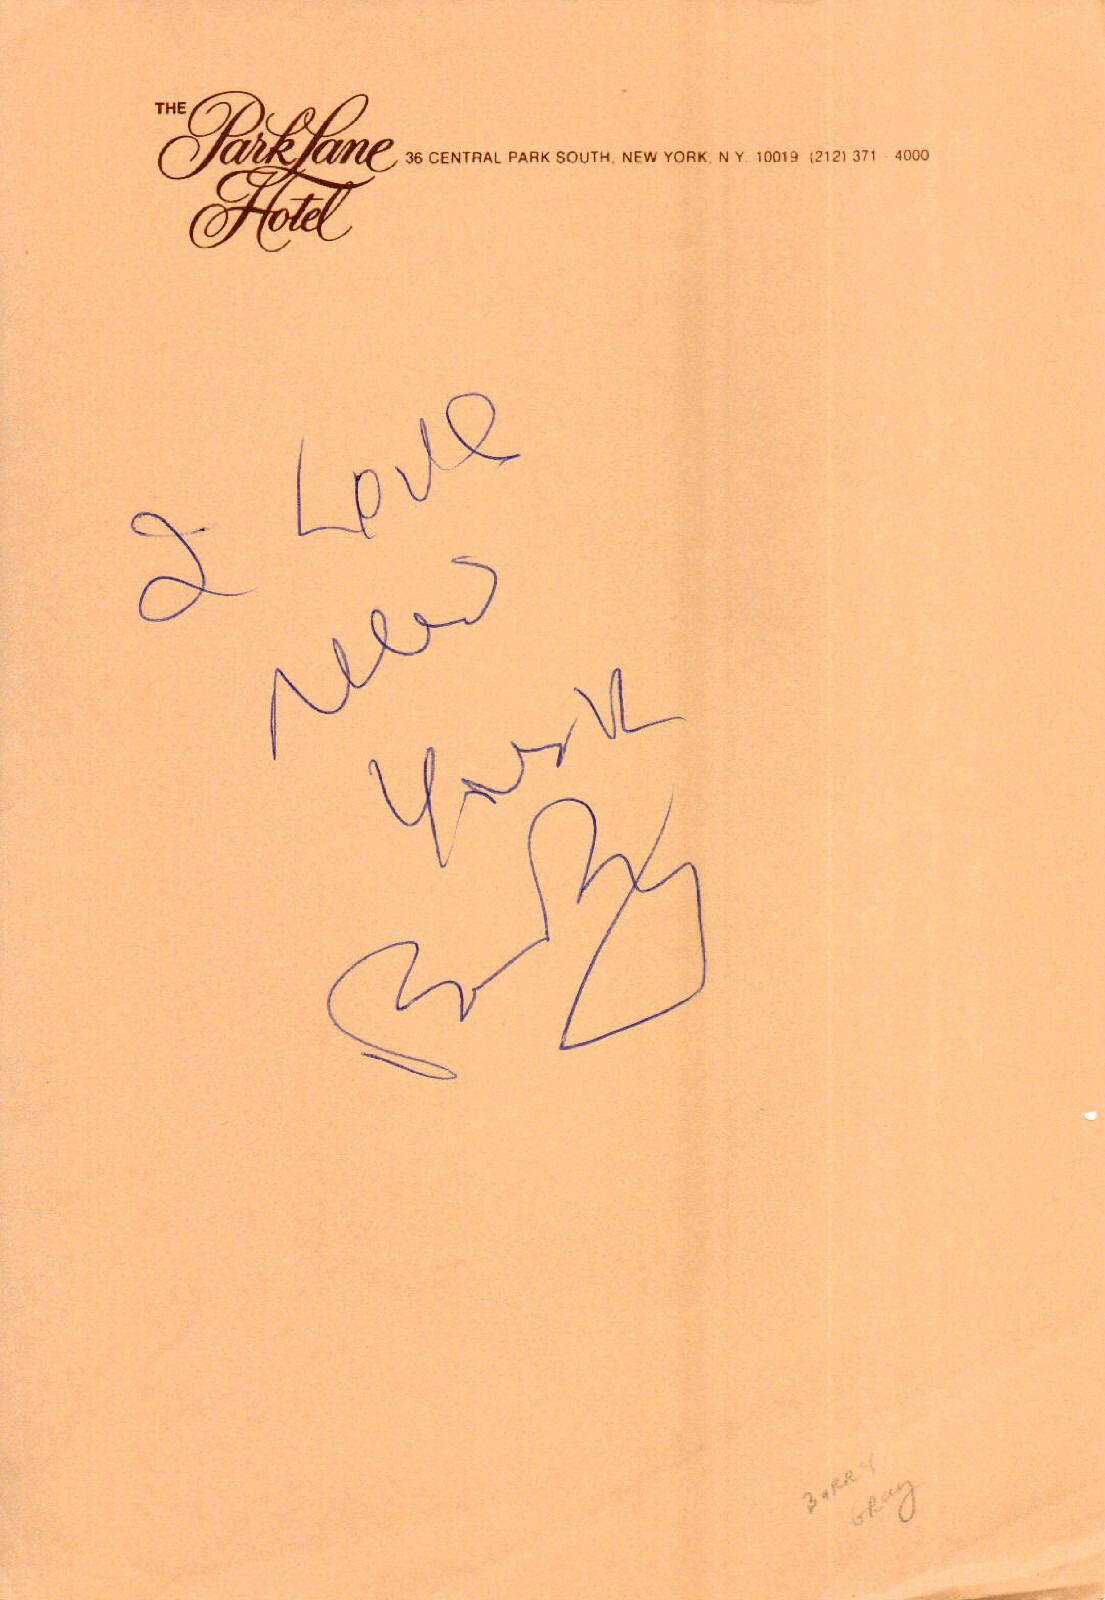 THE
Park Lane 36 CENTRAL PARK SOUTH, NEW YORK, N Y 10019 (212) 371 4000
Hotel
I Love
New
York
BARRY
GRAY